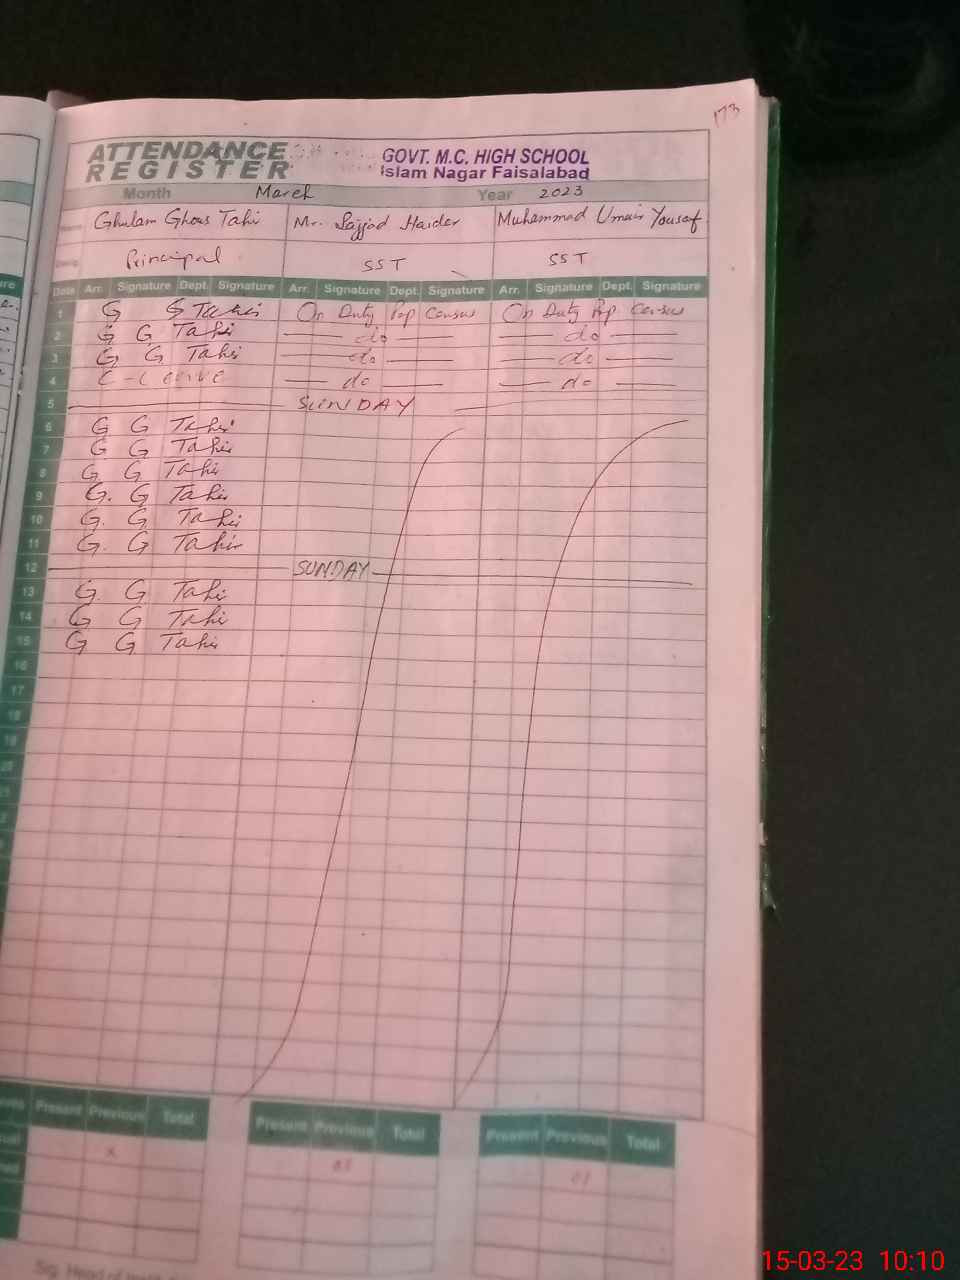 173
ATTENDANCE REGISTER
GOVT. M.C. HIGH SCHOOL
Islam Nagar Faisalabad
Month March Year 2023
Ghulam Ghous Tahir Mr. Sajjad Haider Muhammad Umair Yousaf
Principal SST SST
Date Arr. Signature Dept. Signature Arr. Signature Dept. Signature Arr. Signature Dept. Signature
1 G G Tahir On Duty Pop Census On Duty Pop Census
2 G G Tahir do do
3 G G Tahir do do
4 C-Leave do do
5 SUNDAY
6 G G Tahir
7 G G Tahir
8 G G Tahir
9 G. G Tahir
10 G. G Tahir
11 G. G Tahir
12 SUNDAY
13 G. G Tahir
14 G G Tahir
15 G G Tahir
16
17
18
19
Present Previous Total Present Previous Total Present Previous Total
x
15-03-23 10:10